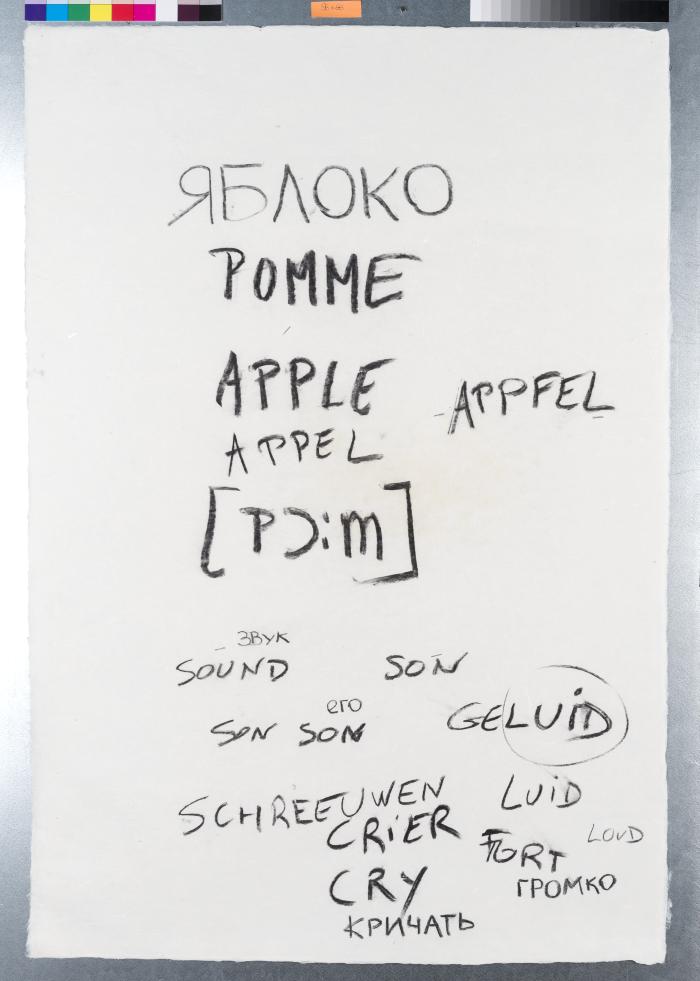 ЯБЛОКО
POMME
APPLE
APPFEL
APPEL
[pɔ:m]
ЗВУК
SOUND
SON
его
SON SON
GELUiD
SCHREEUWEN
LUiD
CRiER
LOUD
FORT
CRY
ГРОМКО
КРИЧАТЬ